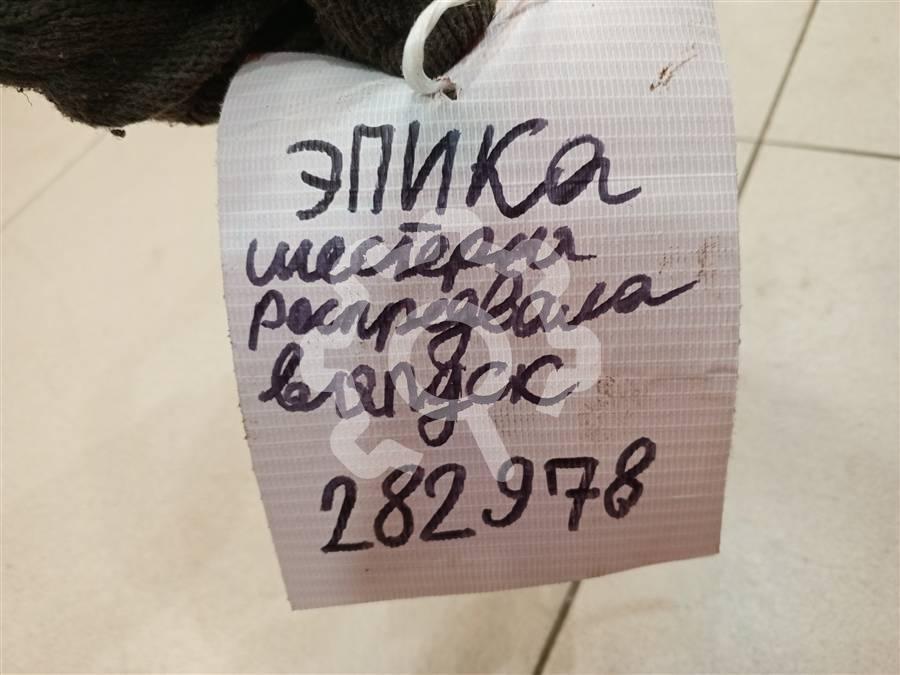 ЭПИКа
шестерня
распредвала
выпуск
282978